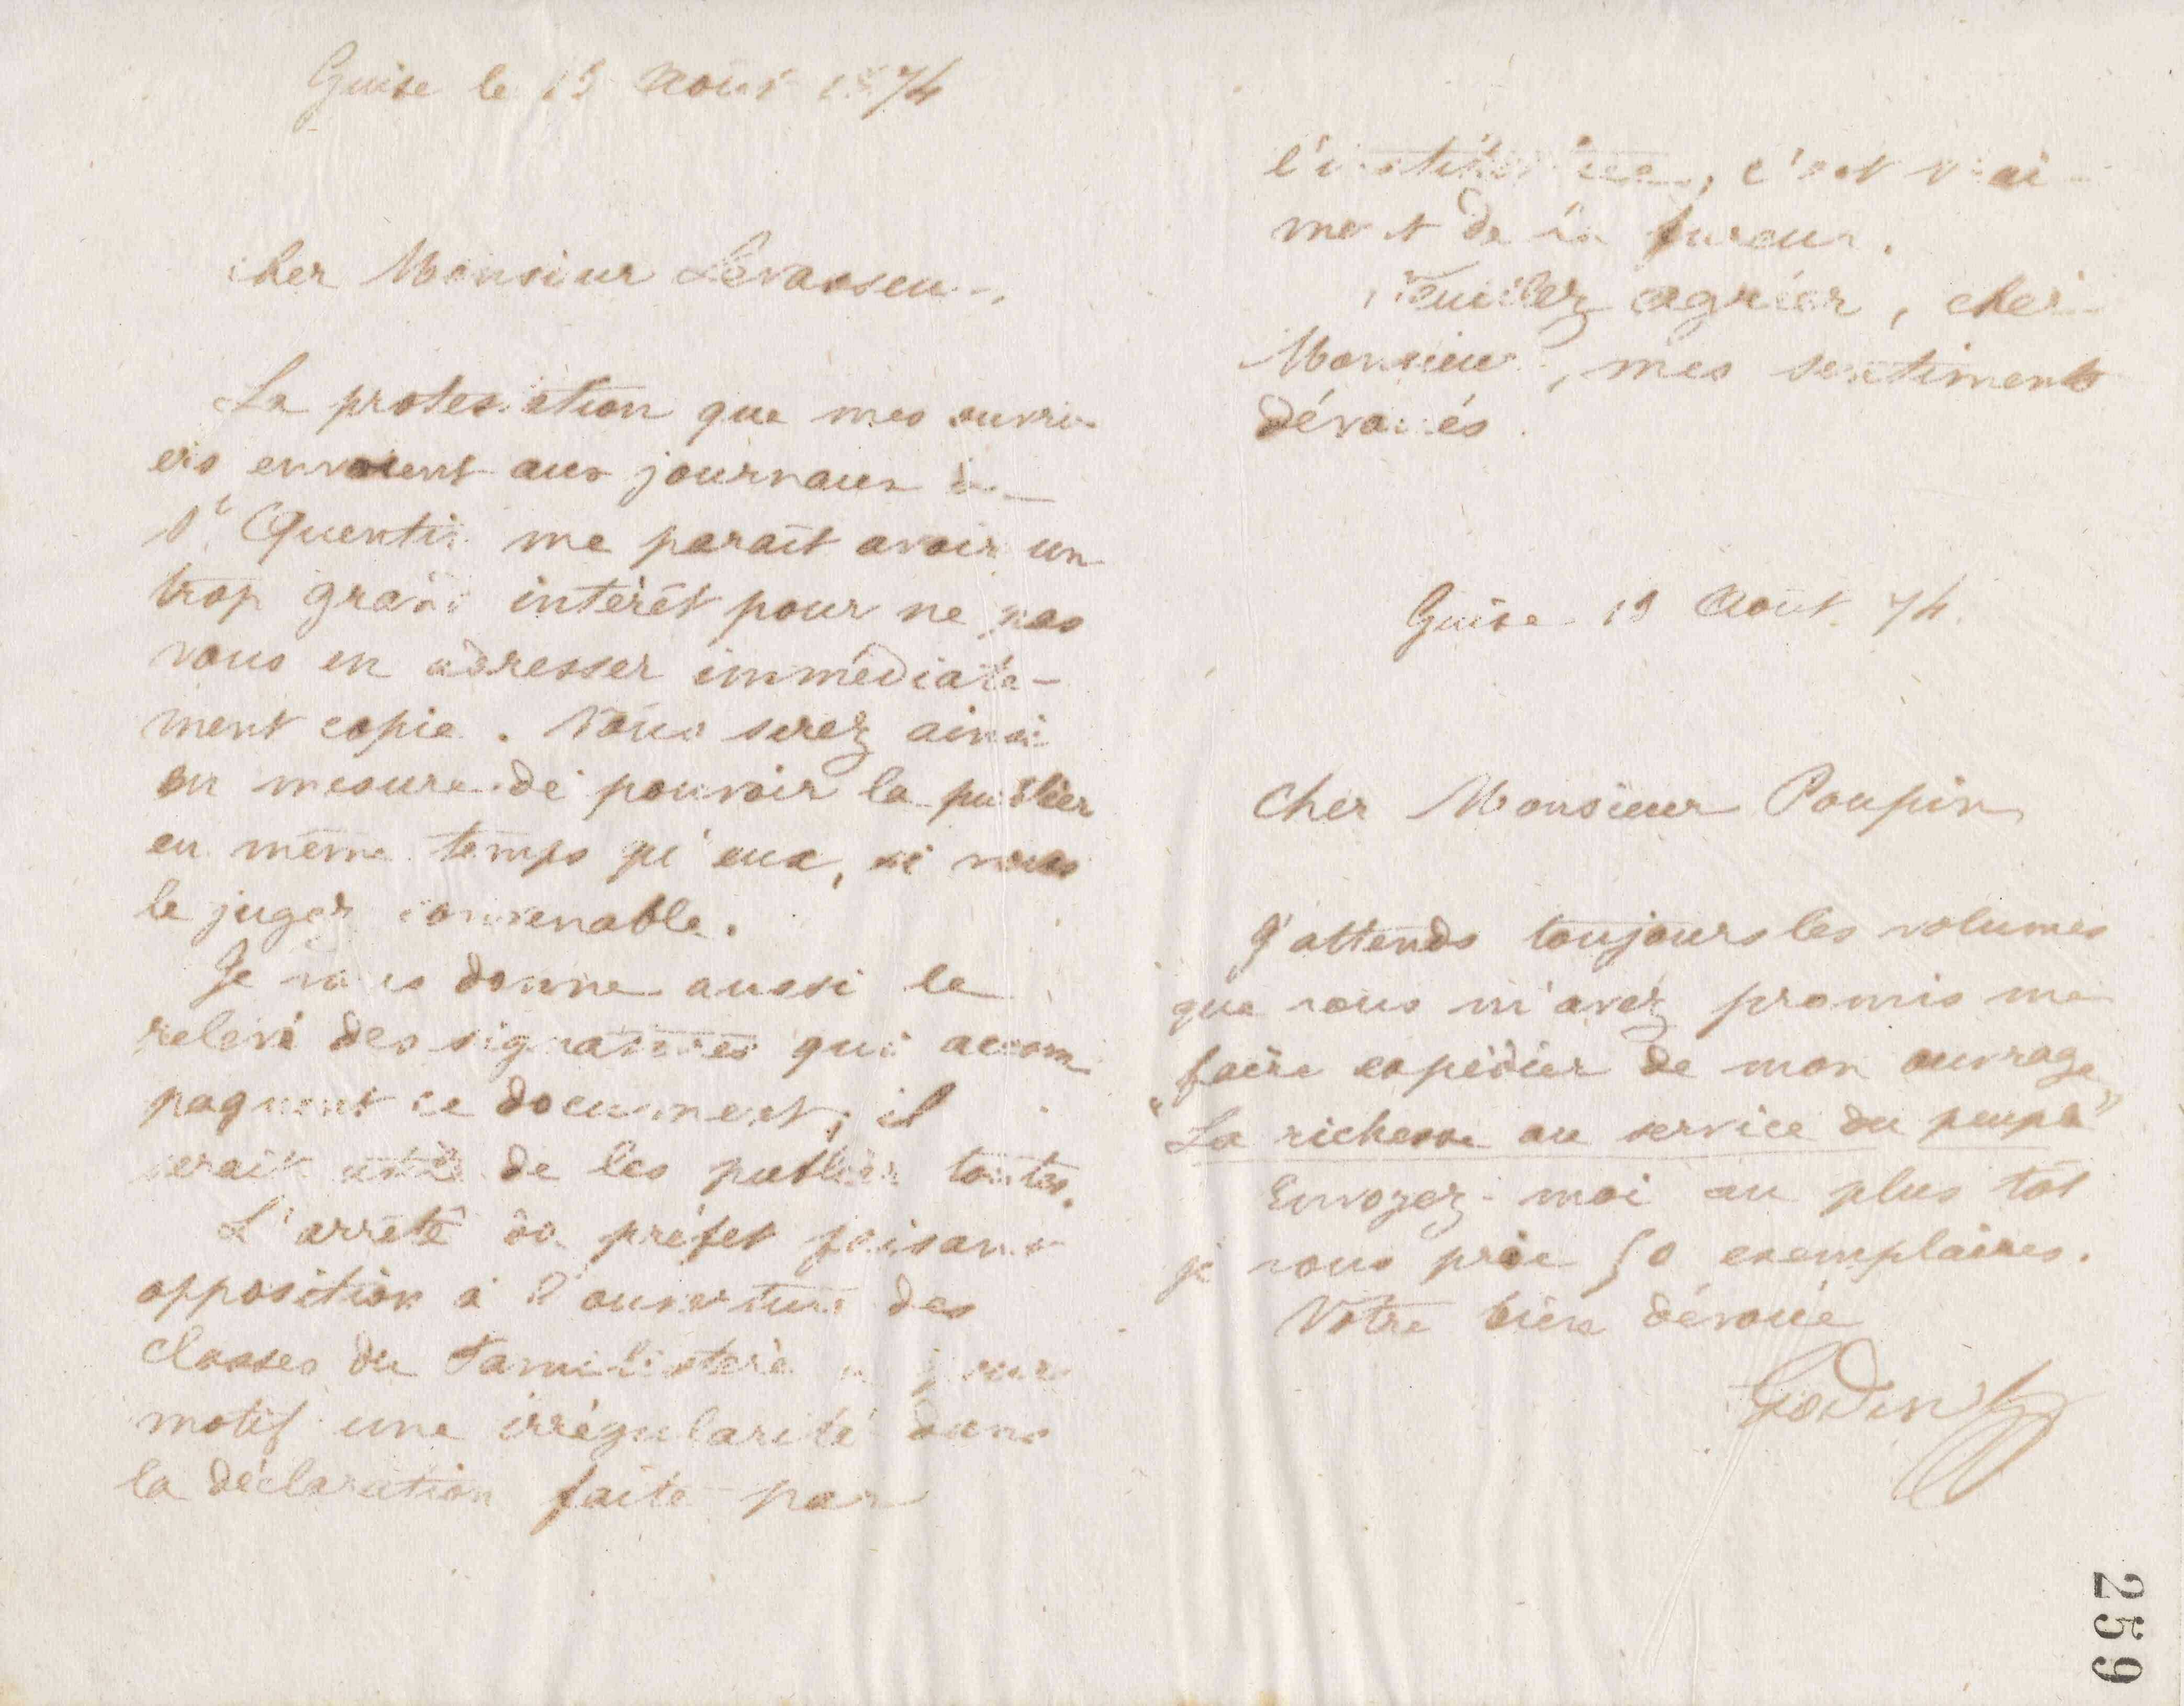 Guise le 19 Août 1874
cher Monsieur Levasseur,
La protestation que mes ouvri-
ers envoient aux journaux de
St Quentin me paraît avoir un
trop grand intérêt pour ne pas
vous en adresser immédiate-
ment copie. Vous serez ainsi
en mesure de pouvoir la publier
en même temps qu'eux, si vous
le jugez convenable.
Je vous donne aussi le
relevé des signatures qui accom
pagnent ce document; il
serait utile de les publier toutes.
L'arrêté du préfet faisant
opposition à l'ouverture des
classes du Familistère a pour
motif une irrégularité dans
la déclaration faite par
l'institutrice, c'est vrai-
ment de la fureur.
Veuillez agréer, cher
Monsieur, mes sentiments
dévoués.
Guise 19 Août 74.
Cher Monsieur Poupin
J'attends toujours les volumes
que vous m'avez promis me
faire expédier de mon ouvrage
"La richesse au service du peuple"
Envoyez-moi au plus tôt
je vous prie 50 exemplaires.
Votre bien dévoué
Godin
259